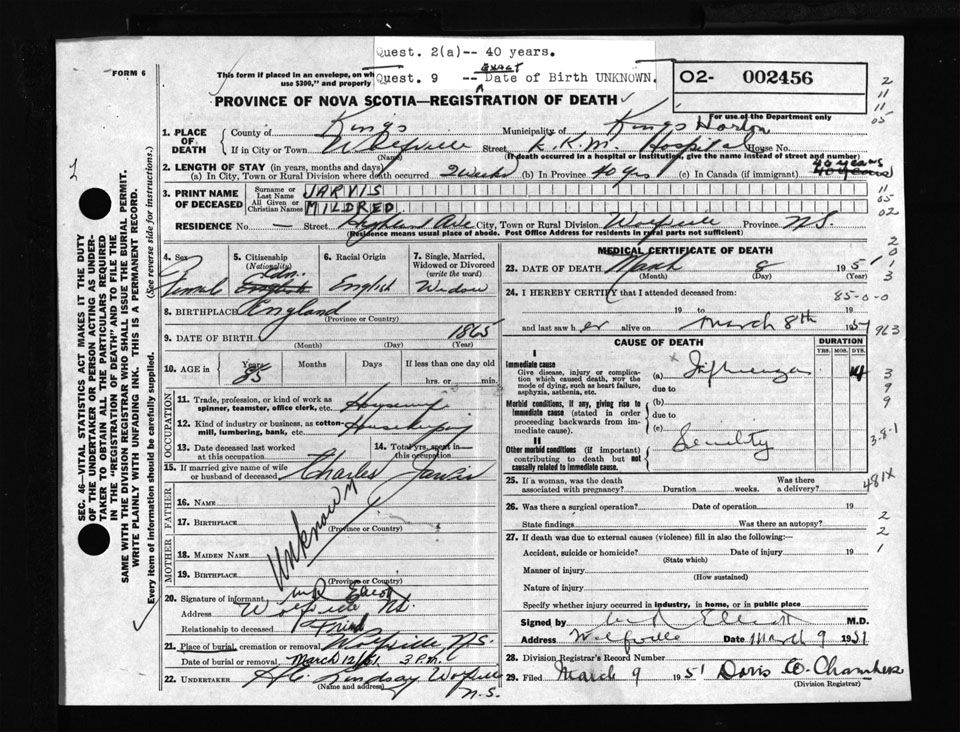 Quest. 2(a)-- 40 years.
EXACT
Quest. 9 -- Date of Birth UNKNOWN.
FORM 6
This form if placed in an envelope, on wh
use $300," and properly
O2- 002456
For use of the Department only
PROVINCE OF NOVA SCOTIA—REGISTRATION OF DEATH
1. PLACE OF DEATH
County of Kings Municipality of Kings Horton
If in City or Town Wolfville Street E.K.M. Hospital House No.
(Name) (If death occurred in a hospital or institution, give the name instead of street and number)
2. LENGTH OF STAY (in years, months and days)
40 years
(a) In City, Town or Rural Division where death occurred 2 weeks (b) In Province 40 yrs (c) In Canada (if immigrant) 40 years
3. PRINT NAME OF DECEASED
Surname or Last Name JARVIS
All Given or Christian Names MILDRED
RESIDENCE No. — Street Highland Ave City, Town or Rural Division Wolfville Province N.S.
(Residence means usual place of abode. Post Office Address for residents in rural parts not sufficient)
4. Sex Female
5. Citizenship (Nationality) Can. English
6. Racial Origin English
7. Single, Married, Widowed or Divorced (write the word) Widow
8. BIRTHPLACE England
(Province or Country)
9. DATE OF BIRTH 1865
(Month) (Day) (Year)
10. AGE in Years 85 Months Days If less than one day old
hrs. or min.
OCCUPATION
11. Trade, profession, or kind of work as spinner, teamster, office clerk, etc. Housewife
12. Kind of industry or business, as cotton-mill, lumbering, bank, etc. Housekeeping
13. Date deceased last worked at this occupation
14. Total yrs. spent in this occupation
15. If married give name of wife or husband of deceased Charles Jarvis
FATHER
16. NAME
17. BIRTHPLACE
(Province or Country)
Unknown
MOTHER
18. MAIDEN NAME
19. BIRTHPLACE
(Province or Country)
20. Signature of informant
Address Wolfville N.S.
Relationship to deceased Friend
21. Place of burial, cremation or removal Wolfville, N.S.
Date of burial or removal March 12/51. 3 P.m.
22. UNDERTAKER H.C. Lindsay, Wolfville
(Name and address) N.S.
MEDICAL CERTIFICATE OF DEATH
23. DATE OF DEATH March 8 1951
(Month) (Day)
24. I HEREBY CERTIFY that I attended deceased from:
85-0-0
19 to
and last saw her alive on March 8th 1951
CAUSE OF DEATH
DURATION
YRS. MOS. DYS.
I
Immediate cause
Give disease, injury or complication which caused death, NOT the mode of dying, such as heart failure, asphyxia, asthenia, etc.
(a) Influenza 14
due to
Morbid conditions, if any, giving rise to immediate cause (stated in order proceeding backwards from immediate cause).
(b)
due to
(c)
II
Other morbid conditions (if important) contributing to death but not causally related to immediate cause.
Senility
25. If a woman, was the death associated with pregnancy? Duration weeks. Was there a delivery?
481X
26. Was there a surgical operation? Date of operation 19
State findings Was there an autopsy?
27. If death was due to external causes (violence) fill in also the following:
Accident, suicide or homicide? Date of injury 19
(State which)
Manner of injury
(How sustained)
Nature of injury
Specify whether injury occurred in industry, in home, or in public place
Signed by M.D.
Address Wolfville Date March 9 1951
28. Division Registrar's Record Number
29. Filed March 9 1951 Doris O. Chambers
(Division Registrar)
SEC. 46—VITAL STATISTICS ACT MAKES IT THE DUTY
OF THE UNDERTAKER OR PERSON ACTING AS UNDER-
TAKER TO OBTAIN ALL THE PARTICULARS REQUIRED
IN THE "REGISTRATION OF DEATH" AND TO FILE THE
SAME WITH THE DIVISION REGISTRAR WHO SHALL ISSUE THE BURIAL PERMIT.
WRITE PLAINLY WITH UNFADING INK. THIS IS A PERMANENT RECORD.
Every item of information should be carefully supplied. (See reverse side for instructions.)